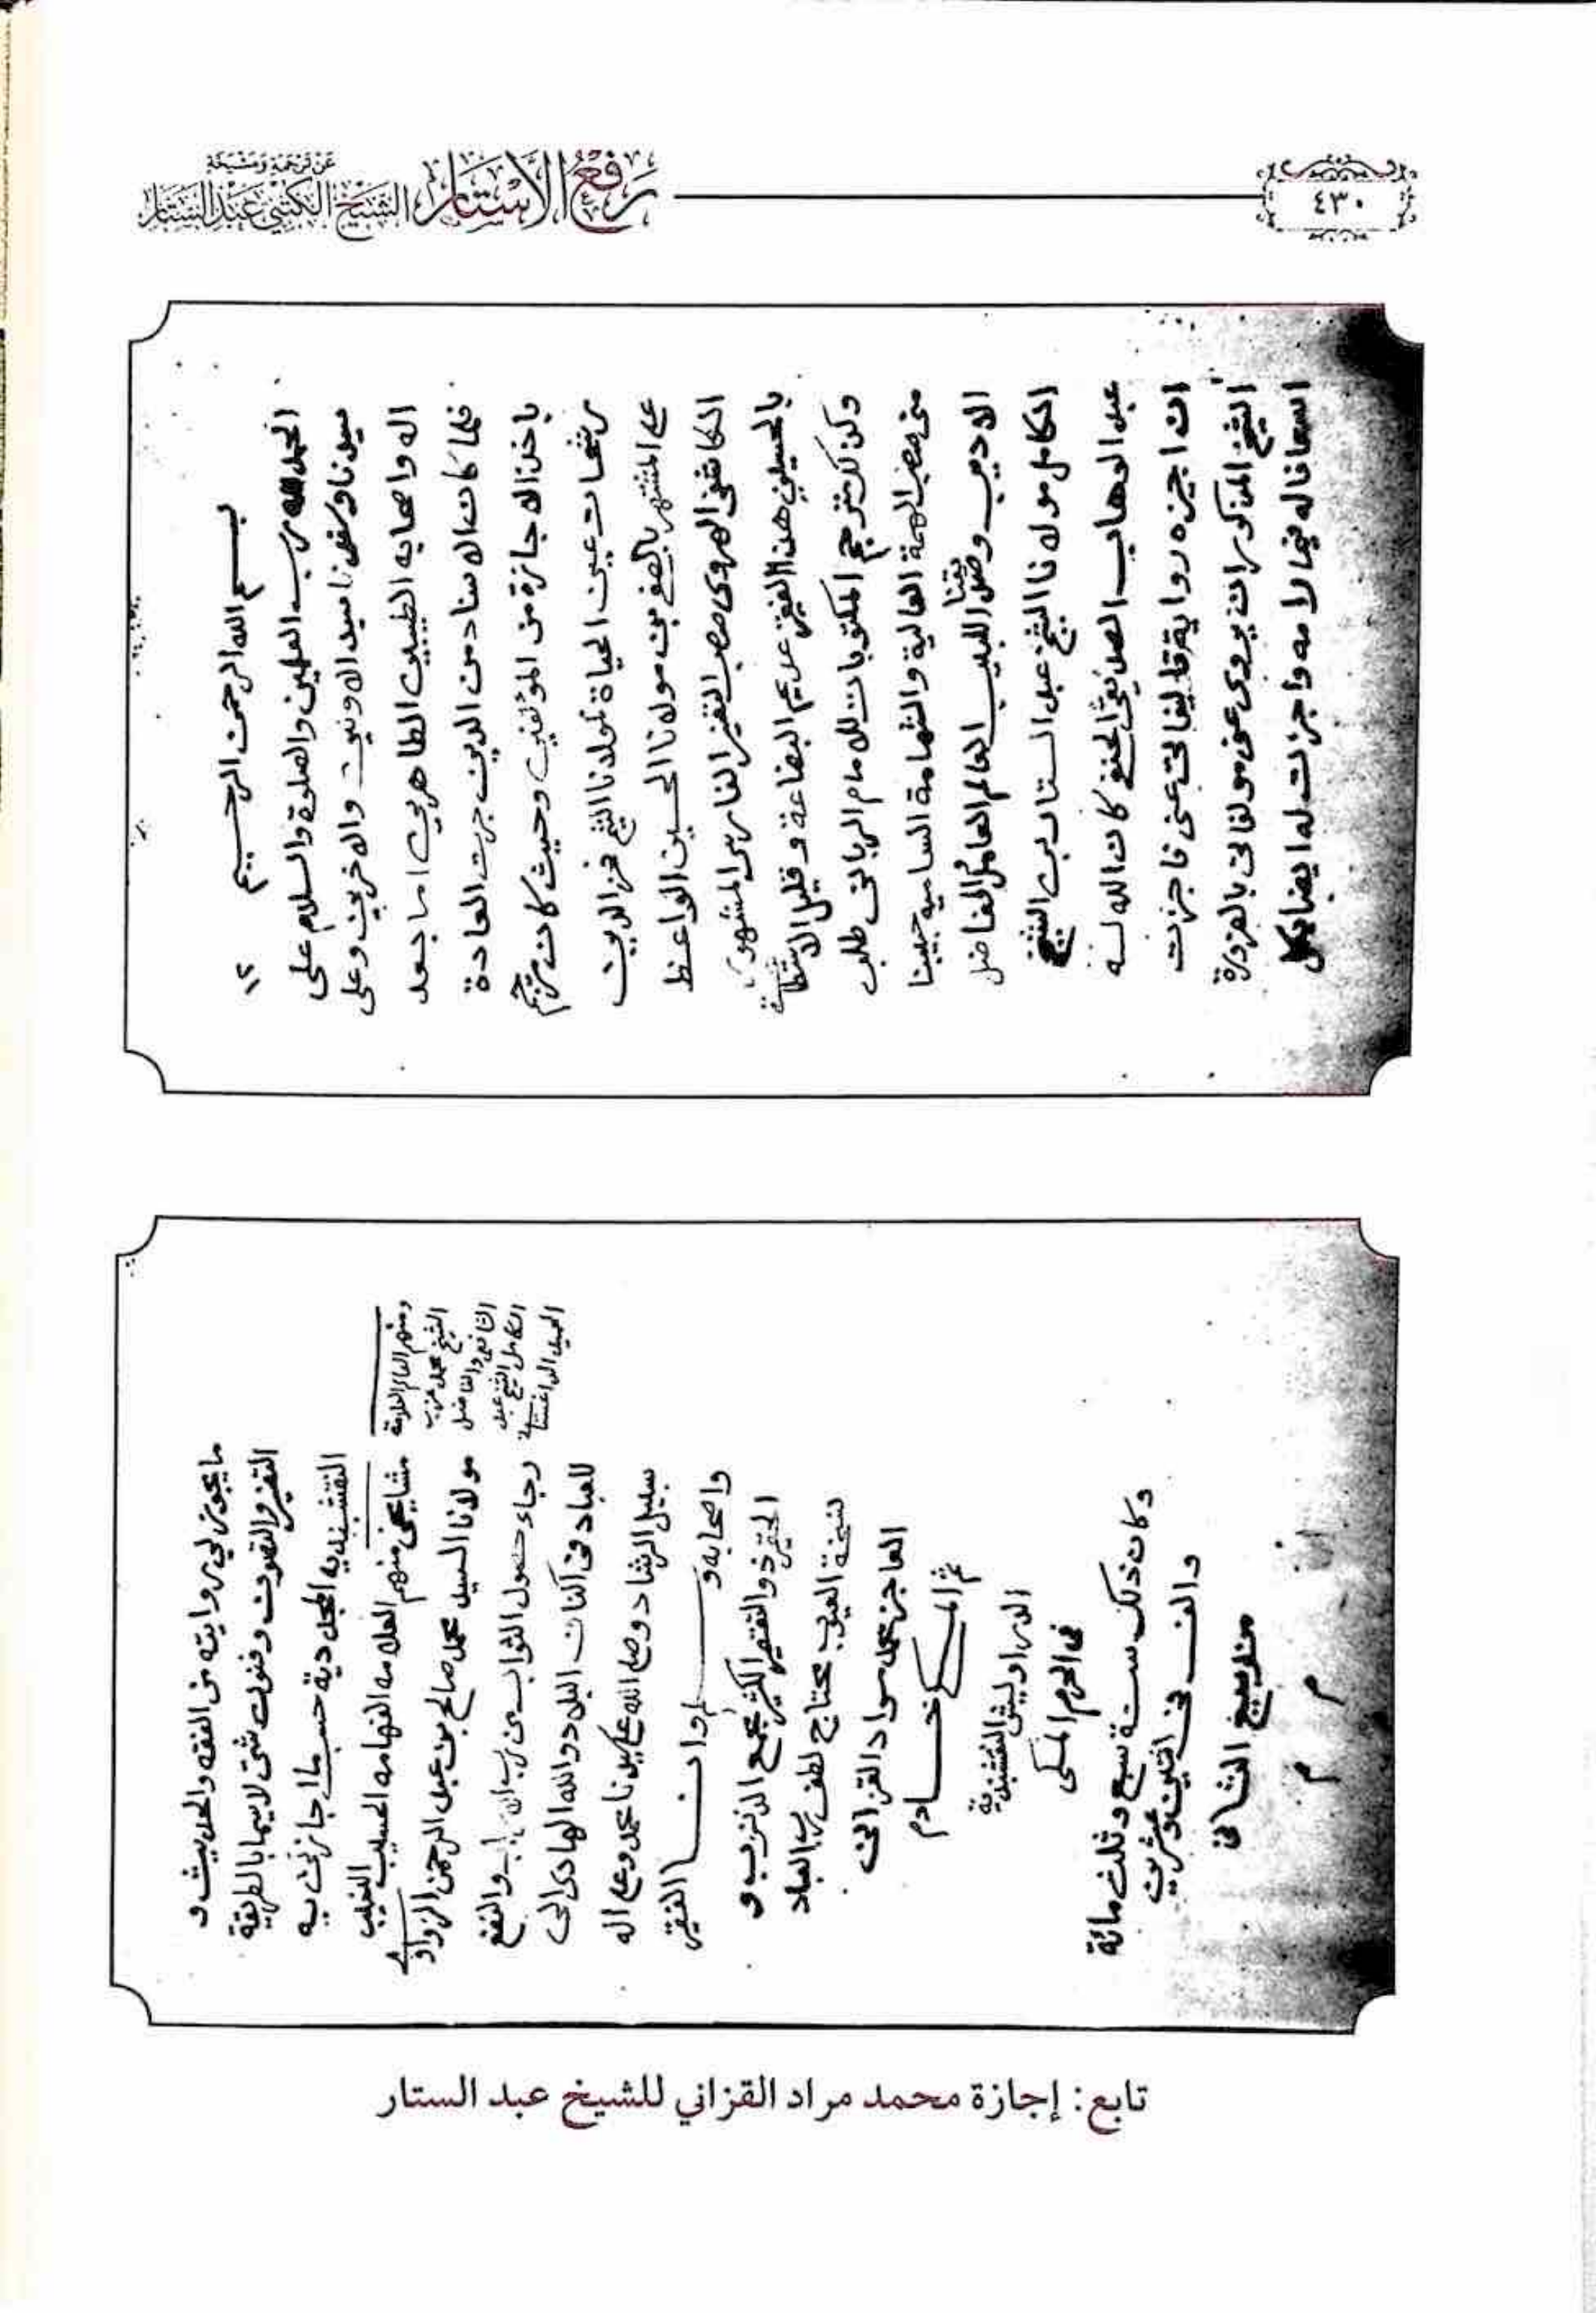 ٤٣٠
رفع الأستار
عن ترجمة ومشيخة
الشيخ الكتبي عبد الستار
١٢
بسم الله الرحمن الرحيم
الحمد لله رب العلمين والصلوة والسلام على
سيدنا وشفيعنا سيد الاولين والاخرين وعلى
اله واصحابه الطيبين الطاهرين اما بعد
فلما كان الاسناد من الدين جرت العادة
باخذ الاجازة من المؤلفين وحيث كان مترجم
رشحات عين الحياة لمولانا الشيخ فخر الدين
على المشتهر بالصفي بن مولانا الحسين الواعظ
الكاشفي الهروي معرب النقير الفارسي المشهور
بالحسيني هذا الفقير عديم البضاعة وقليل الاستطاعة
وكذلك مترجم المكتوبات للامام الرباني طلب
مني صاحب الهمة العالية والشهامة السامية حبيبنا
الاديب وصديقنا اللبيب العالم العامل الفاضل
الكامل مولانا الشيخ عبد الستار بن الشيخ
عبد الوهاب الصديقي الحنفي كان الله له
ان اجيزه رواية تاليفاتي عني فاجزت
الشيخ المذكور ان يروي عني مولفاتي بالمزدرة
اسعافا له فيما لامه واجزت له ايضا بكل
ما يجوز لي روايته من الفقه والحديث و
التفسير والتصوف وفنون شتى لاسيما بالطريقة
النقشبندية المجددية حسبما اجازني به
مشايخي منهم العلامة الفهامة الحسيب النسيب
مولانا السيد محمد صالح بن عبد الرحمن الزواوي
ومنهم العالم العلامة
الشيخ محمد مزب
الثاني والفاضل
الكامل الشيخ عبد
الحميد الداغستانية
رجاء حصول الثواب من رب الارباب والنفع
للعباد في اكناف البلاد والله الهادي الى
سبيل الرشاد وصلى الله على سيدنا محمد وعلى اله
واصحابه وسلم وانا الفقير
الحقير ذو التقصير الكثير مجمع الذنوب و
نسخة العيوب محتاج لطف رب العباد
العاجز محمد مراد القزاني
ثم المكي خادم
الدراويش النقشبندية
في الحرم المكي
وكان ذلك سنة سبع وثلث مائة
والف في اثنين وعشرين
من ربيع الثاني
م م
تابع: إجازة محمد مراد القزاني للشيخ عبد الستار